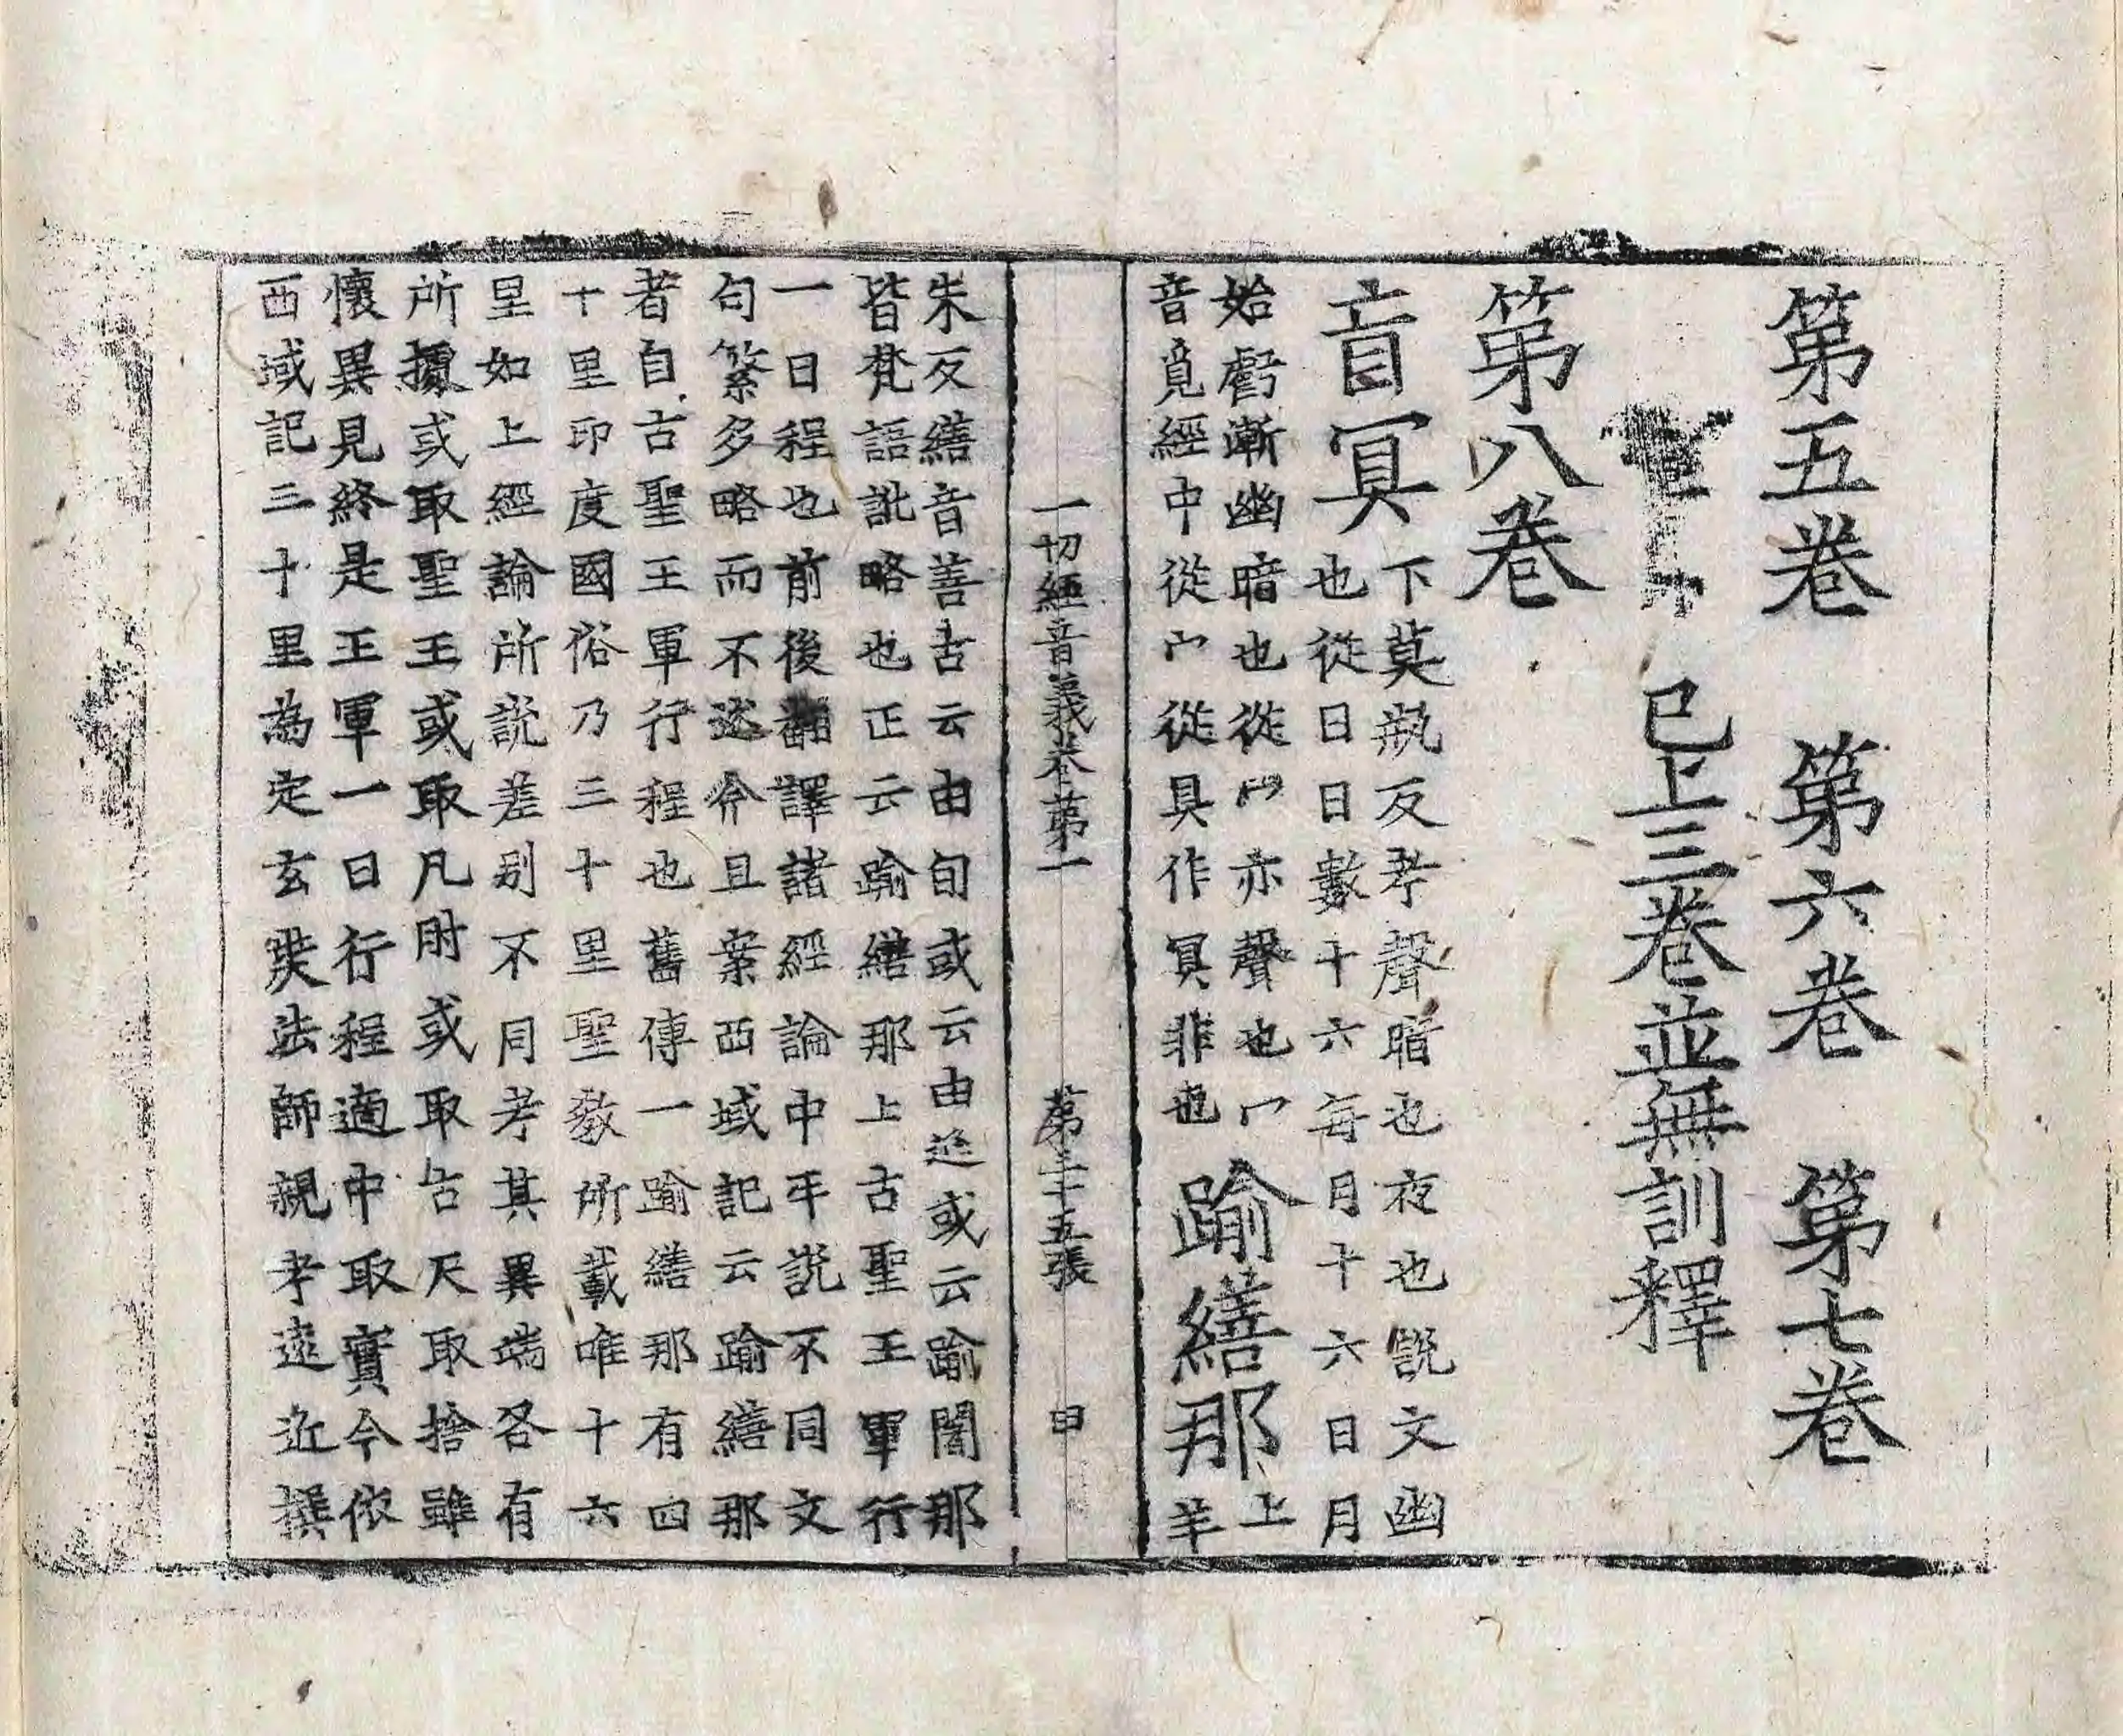 第五卷 第六卷 第七卷
已上三卷並無訓釋
第八卷
盲冥
下莫瓶反考聲暗也夜也說文幽
也從日日數十六每月十六日月
始虧漸幽暗也從冖亦聲也冖
音覓經中從宀從具作冥非也
踰繕那
上
羊
一切經音義卷第一 第三十五張 曰
朱反繕音善古云由旬或云由延或云踰闍那
皆梵語訛略也正云踰繕那上古聖王軍行
一日程也前後翻譯諸經論中平說不同文
句繁多略而不述今且案西域記云踰繕那
者自古聖王軍行程也舊傳一踰繕那有四
十里印度國俗乃三十里聖教所載唯十六
里如上經論所說差別不同考其異端各有
所據或取聖王或取凡肘或取古尺取捨雖
懷異見終是王軍一日行程適中取實今依
西域記三十里為定玄奘法師親考遠近撰